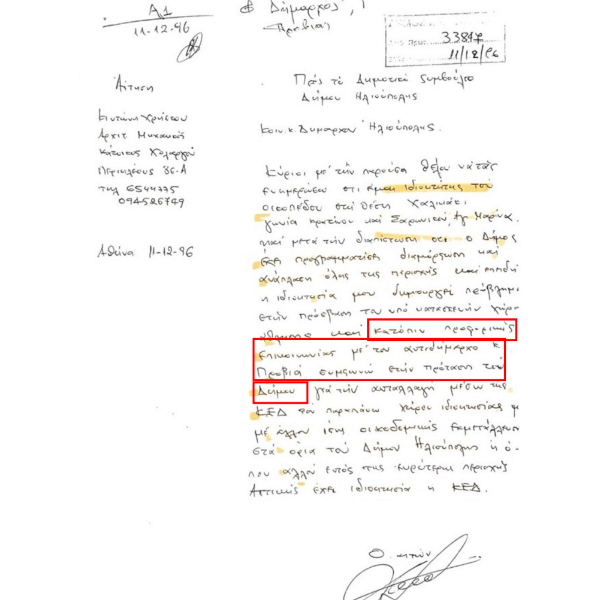 Α1
11-12-96
Δήμαρχος
Προβιάς
33817
11/12/96
Αίτηση
Χρήστου
Αρχιτ Μηχανικός
Κάτοικος Χολαργού
Περικλέους 36-Α
τηλ 6544775
094526749
Αθήνα 11-12-96
Πρός τό Δημοτικό Συμβούλιο
Δήμου Ηλιούπολης
Κοιν. κ. Δημαρχον Ηλιούπολης.
Κύριοι μέ τήν παρούσα θέλω νά σάς
ενημερώσω οτι είμαι ιδιοκτήτης του
οικοπέδου στή θέση Χαλικάκι
γωνία Κρατίνου καί Σαρωνικού, Αγ Μαρίνα
καί μετά τήν διαπίστωση οτι ο Δήμος
έχει προγραμματίσει διαμόρφωση καί
ανάπλαση όλης της περιοχής καί επειδή
η ιδιοκτησία μου δημιουργεί πρόβλημα
στήν πρόσβαση του υπό κατασκευήν χώρου
άθλησης καί κατόπιν προφορικής
επικοινωνίας μέ τον αντιδήμαρχο κ.
Προβιά συμφωνώ στήν πρόταση τού
Δήμου γιά τήν ανταλλαγή μέσω της
ΚΕΔ του παραπάνω χώρου ιδιοκτησίας μ
μέ άλλον ίσης οικοδομικής εκμετάλλευσ
στά όρια τού Δήμου Ηλιούπολης ή ό-
που αλλού εντός της ευρύτερης περιοχής
Αττικής έχει ιδιοκτησία η ΚΕΔ.
Ο αιτών